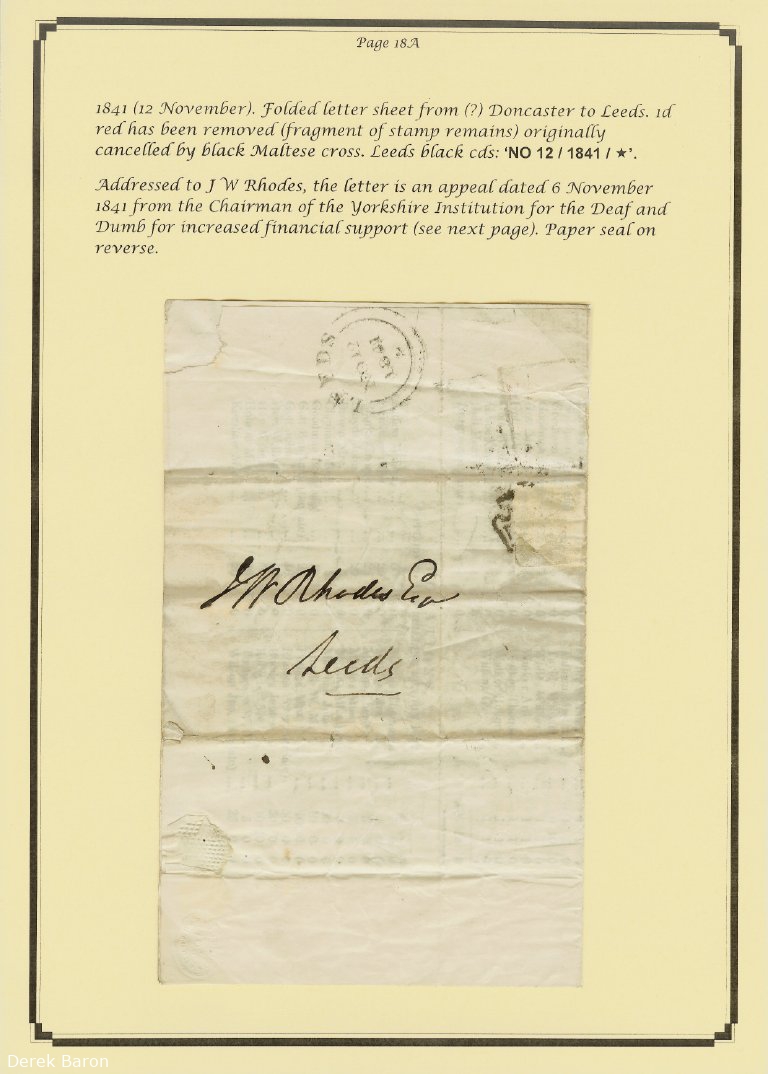 Page 18A
1841 (12 November). Folded letter sheet from (?) Doncaster to Leeds. 1d
red has been removed (fragment of stamp remains) originally
cancelled by black Maltese cross. Leeds black cds: ‘NO 12 / 1841 / ★’.
Addressed to J W Rhodes, the letter is an appeal dated 6 November
1841 from the Chairman of the Yorkshire Institution for the Deaf and
Dumb for increased financial support (see next page). Paper seal on
reverse.
LEEDS
NO 12
1841
J W Rhodes Esqr
Leeds
Derek Baron